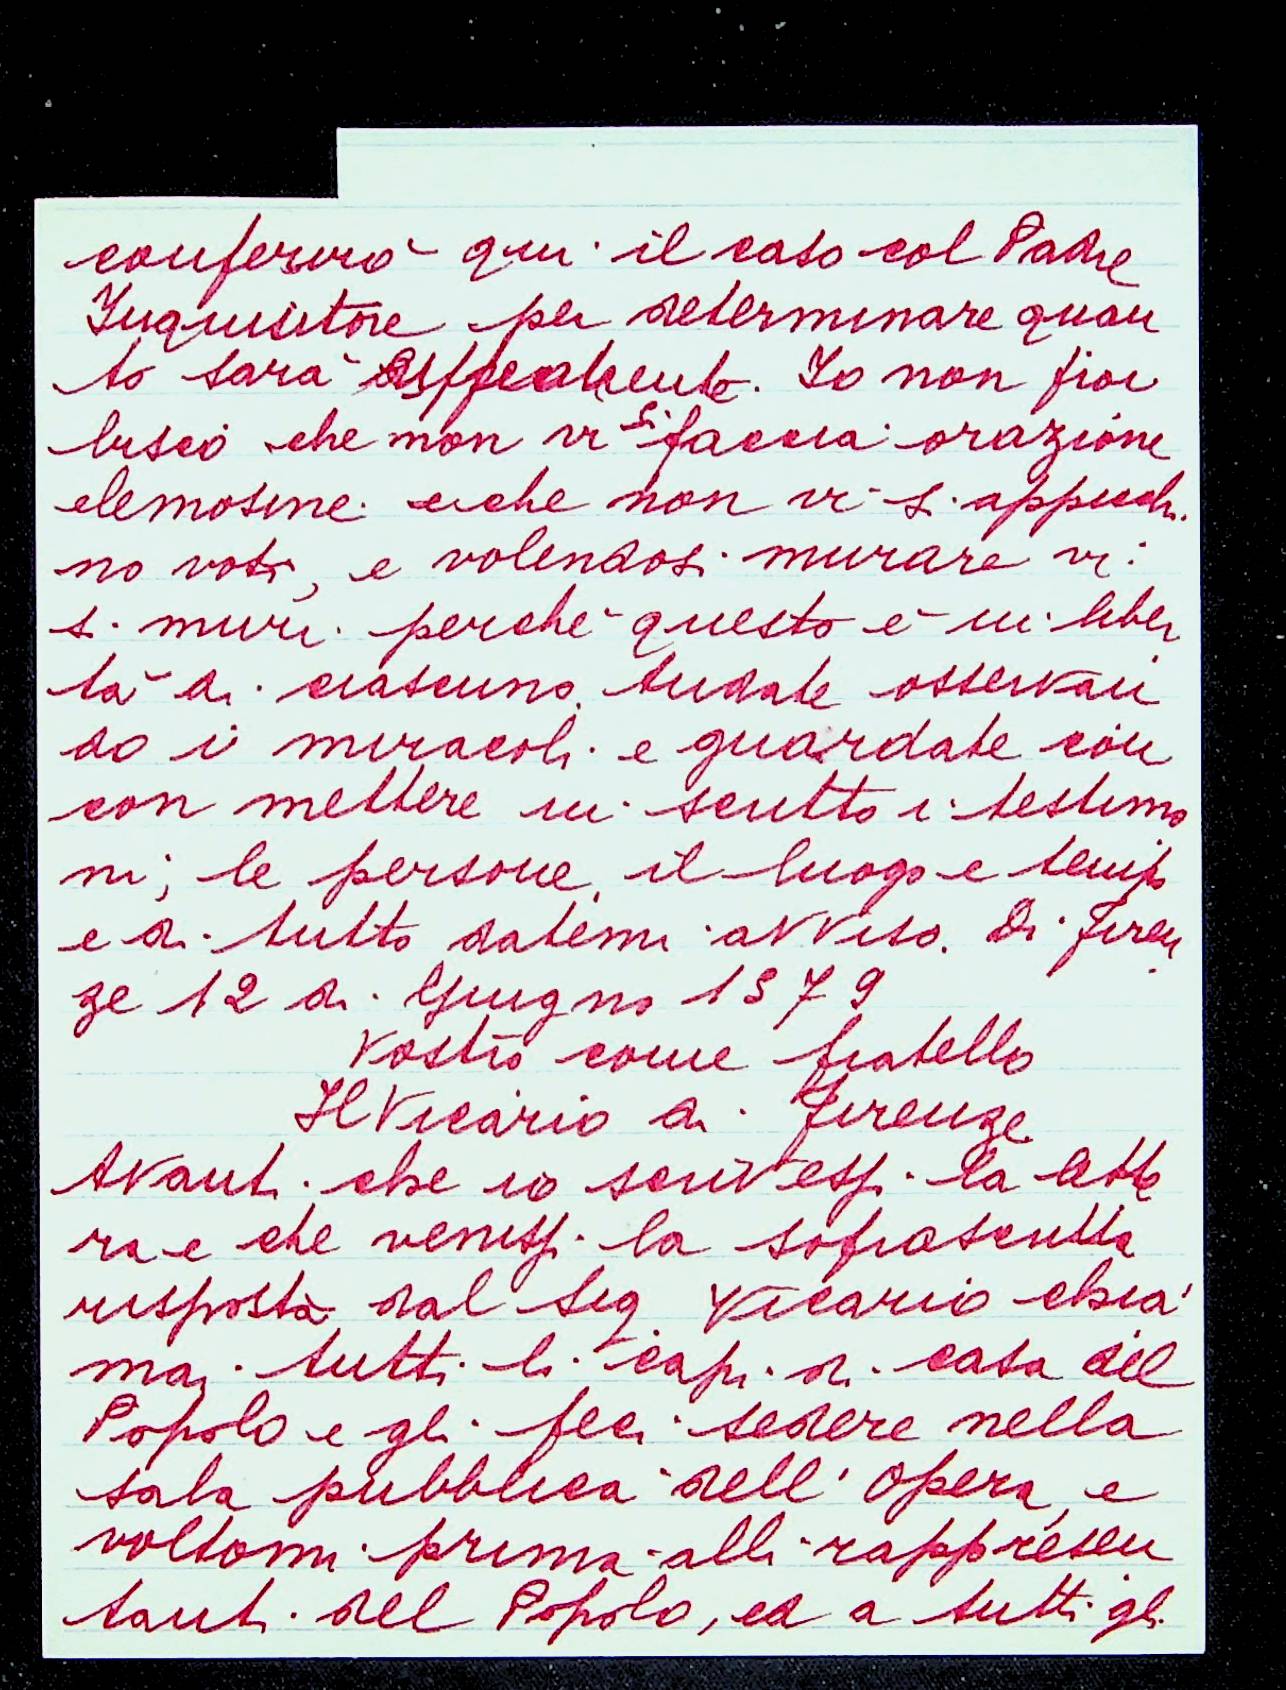 conferirò qui il caso col Padre
Inquisitore per determinare quan
to sarà espediente. Io non proi
bisco che non vi si faccia orazione
elemosine e che non vi si appicchi
no voti, e volendosi murare vi
si muri perchè questo è in liber
tà di ciascuno. Andate osservan
do i miracoli e guardate con
con mettere in scritto i testimo
ni, le persone, il luogo e tempo
e di tutto datemi avviso. Di Firen
ze 12 di Giugno 1579
Vostro come fratello
Il Vicario di Firenze
Avanti che io scrivessi la lette
ra e che venissi la soprascritta
risposta dal Sig. Vicario chia
mai tutti li capi di casa del
Popolo e gli feci sedere nella
sala pubblica dell' Opera, e
voltomi prima alli rappresen
tanti del Popolo, ed a tutti gli